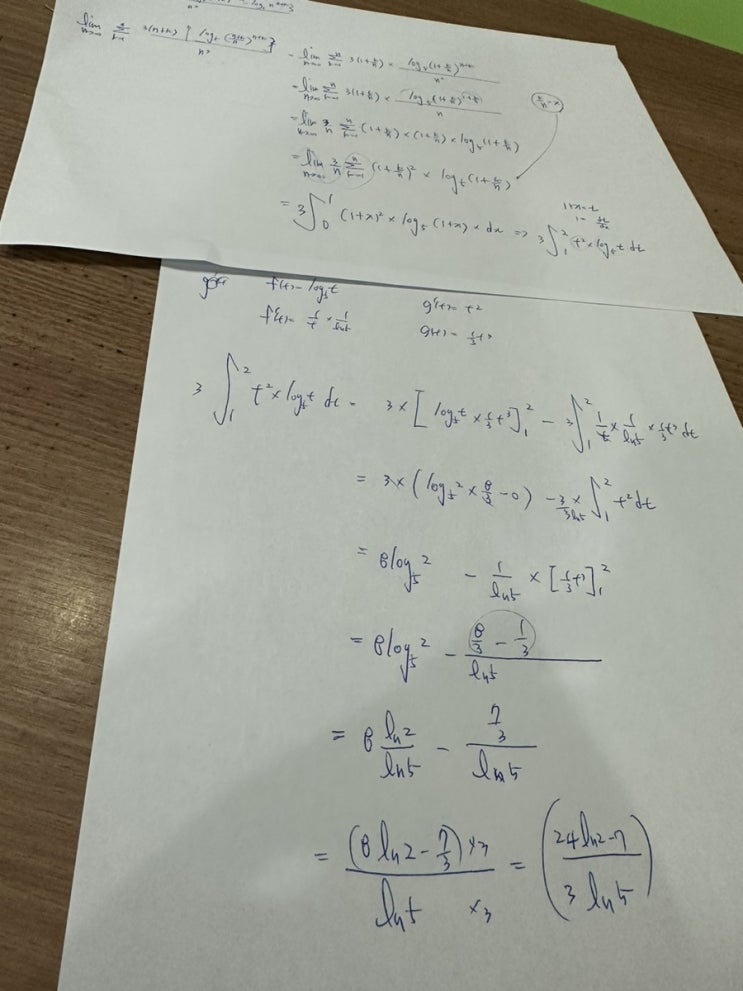 = lim n→∞ Σ k=1 n 3(1+k/n) × log₅(1+k/n)^(n+k) / n²
= lim n→∞ Σ k=1 n 3(1+k/n) × log₅(1+k/n)^(1+k/n) / n
= lim n→∞ 3/n Σ k=1 n (1+k/n) × (1+k/n) × log₅(1+k/n)
= lim n→∞ 3/n Σ k=1 n (1+k/n)² × log₅(1+k/n)
1+x=t
= 3∫₀¹ (1+x)² × log₅(1+x) × dx ⇒ 3∫₁² t² × log₅t dt
f(t)= log₅t g'(t)= t²
f'(t)= 1/t × 1/ln5 g(t)= 1/3 t³
3 ∫₁² t² × log₅t dt = 3 × [log₅t × 1/3 t³]₁² - 3∫₁² 1/t × 1/ln5 × 1/3 t³ dt
= 3× (log₅2 × 8/3 - 0) - 3/3ln5 × ∫₁² t² dt
= 8log₅2 - 1/ln5 × [1/3 t³]₁²
= 8log₅2 - (8/3 - 1/3)/ln5
= 8 ln2/ln5 - (7/3)/ln5
= (8 ln2 - 7/3) ×3 / ln5 ×3 = (24 ln2 - 7 / 3 ln5)